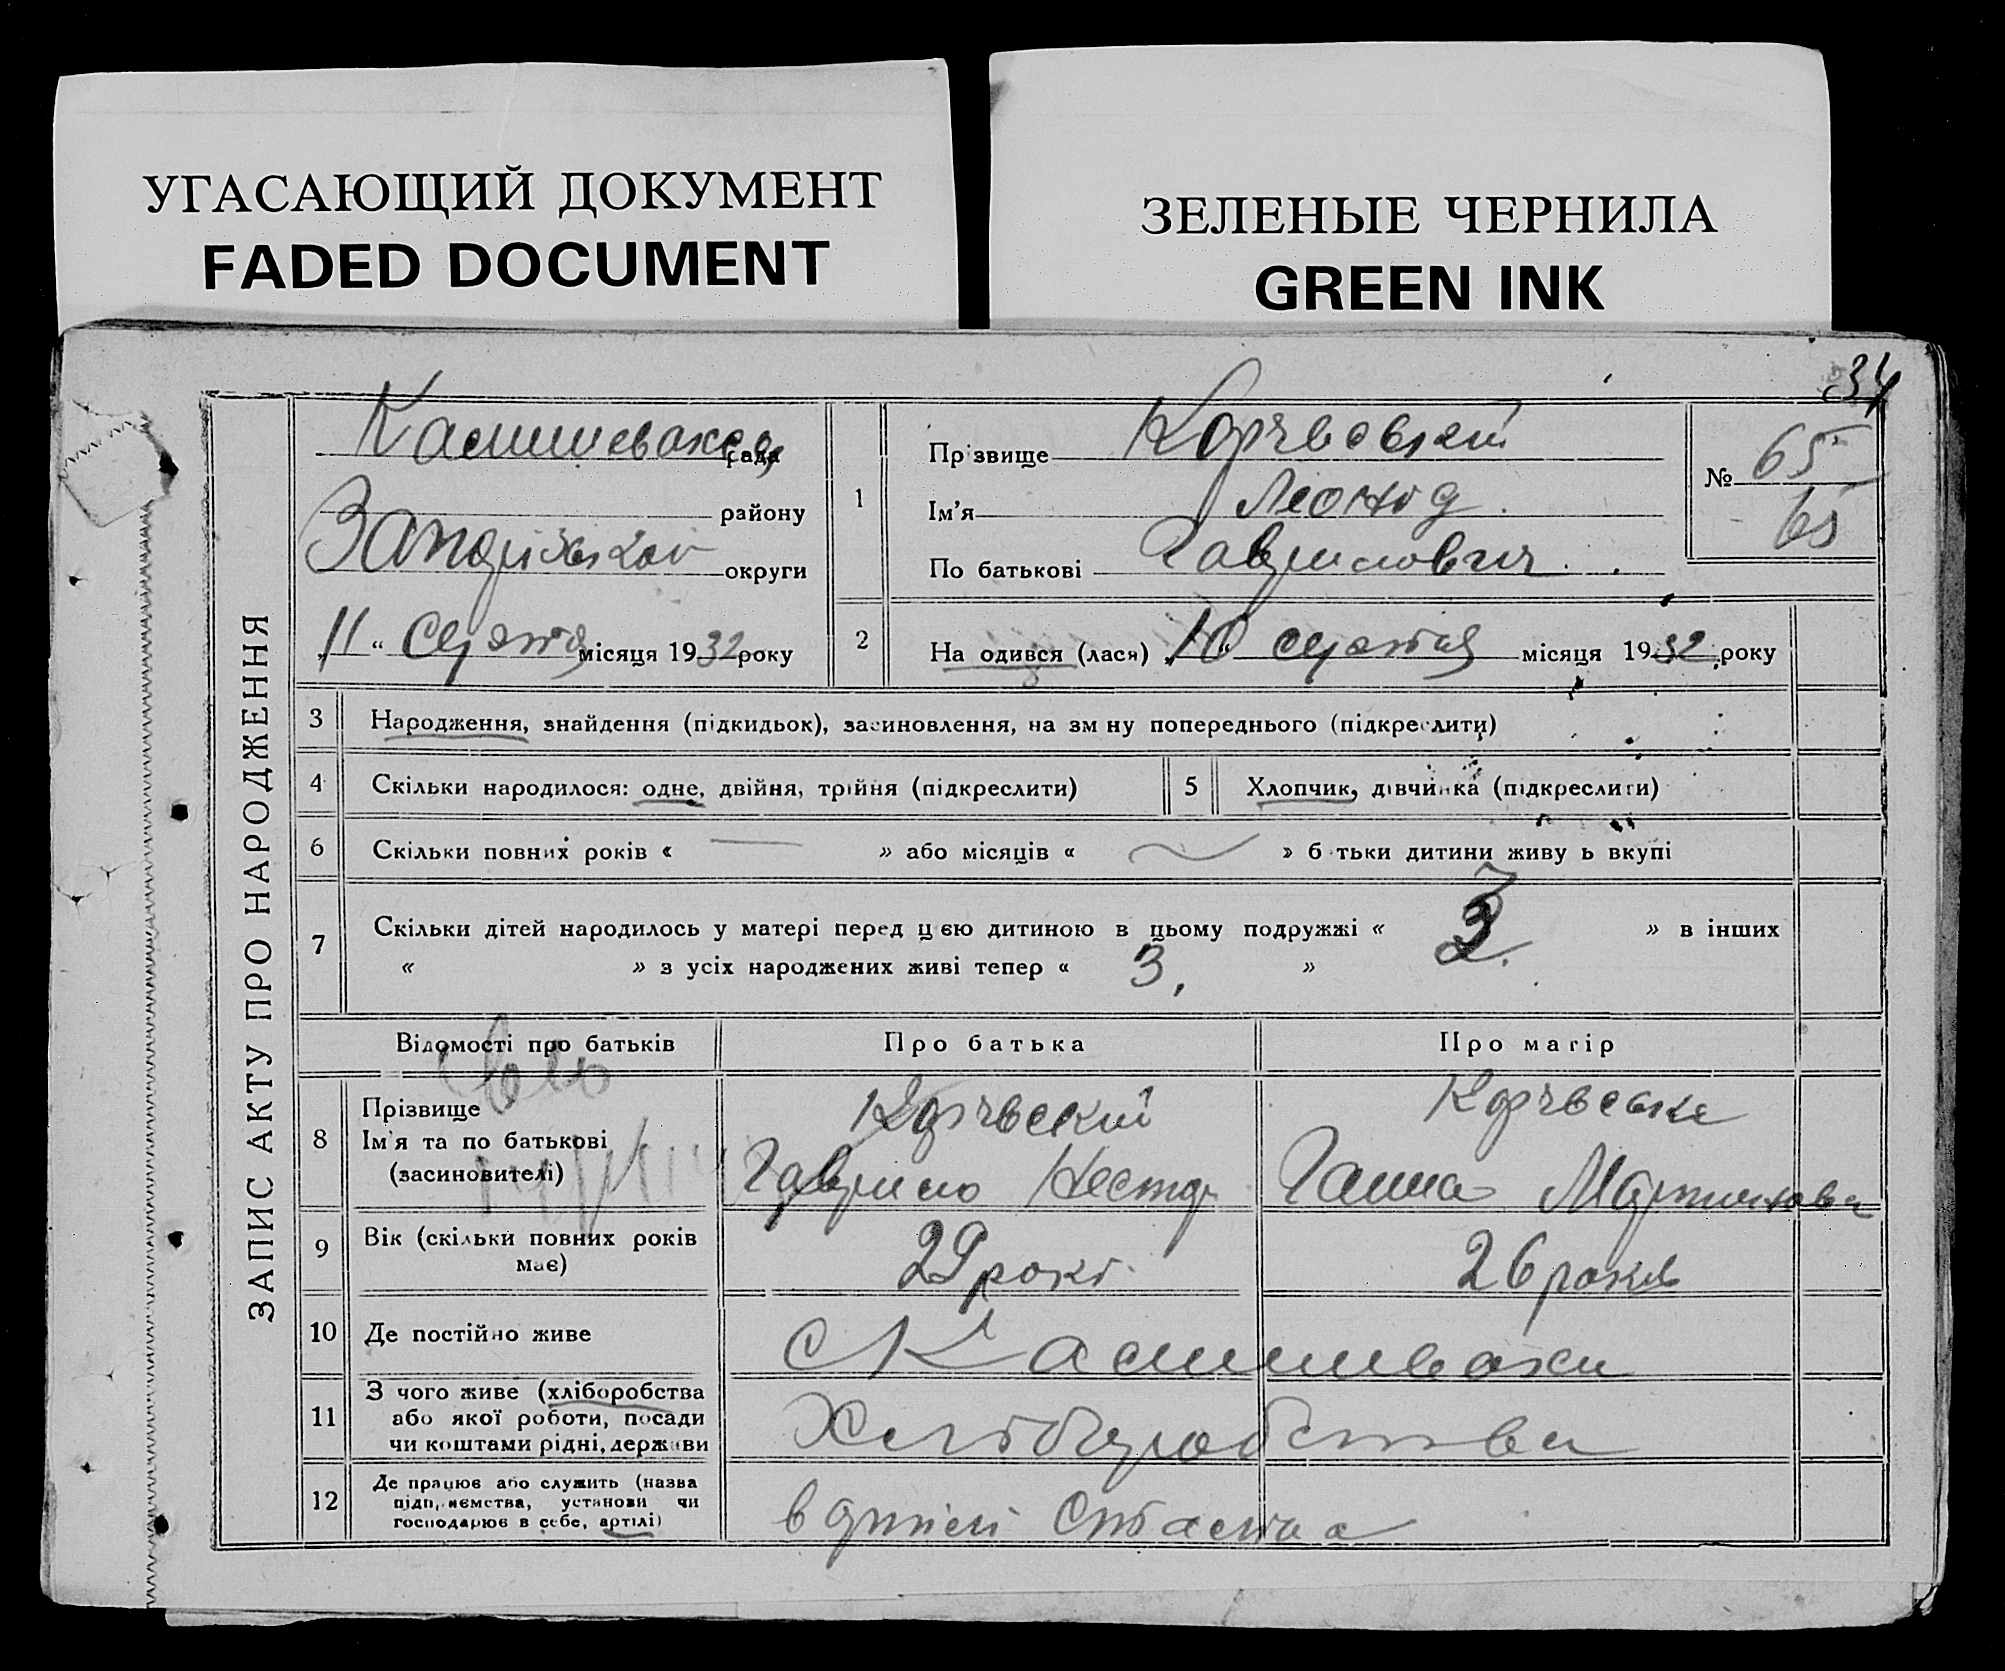 УГАСАЮЩИЙ ДОКУМЕНТ
FADED DOCUMENT
ЗЕЛЕНЫЕ ЧЕРНИЛА
GREEN INK
34
ЗАПИС АКТУ ПРО НАРОДЖЕННЯ
рада
району
округи
„11“ серпня місяця 1932 року
1
Прізвище
Ім'я Леонід
По батькові Гаврилович
№ 65
65
2 Народився (лася) „10“ серпня місяця 1932 року
3 Народження, знайдення (підкидьок), засиновлення, на зміну попереднього (підкреслити)
4 Скільки народилося: одне, двійня, трійня (підкреслити)
5 Хлопчик, дівчинка (підкреслити)
6 Скільки повних років « — » або місяців « » батьки дитини живуть вкупі
7 Скільки дітей народилось у матері перед цією дитиною в цьому подружжі « 3 » в інших
« » з усіх народжених живі тепер « 3, »
Відомості про батьків Про батька Про матір
8 Прізвище
Ім'я та по батькові
(засиновителі)
Гаврило Нестор
Ганна Мартинова
9 Вік (скільки повних років
має)
29 рокі
26 років
10 Де постійно живе с Камишеваха
11 З чого живе (хліборобства
або якої роботи, посади
чи коштами рідні, держави
Хліборобства
12 Де працює або служить (назва
підприємства, установи чи
господарює в себе, артілі)
в артілі